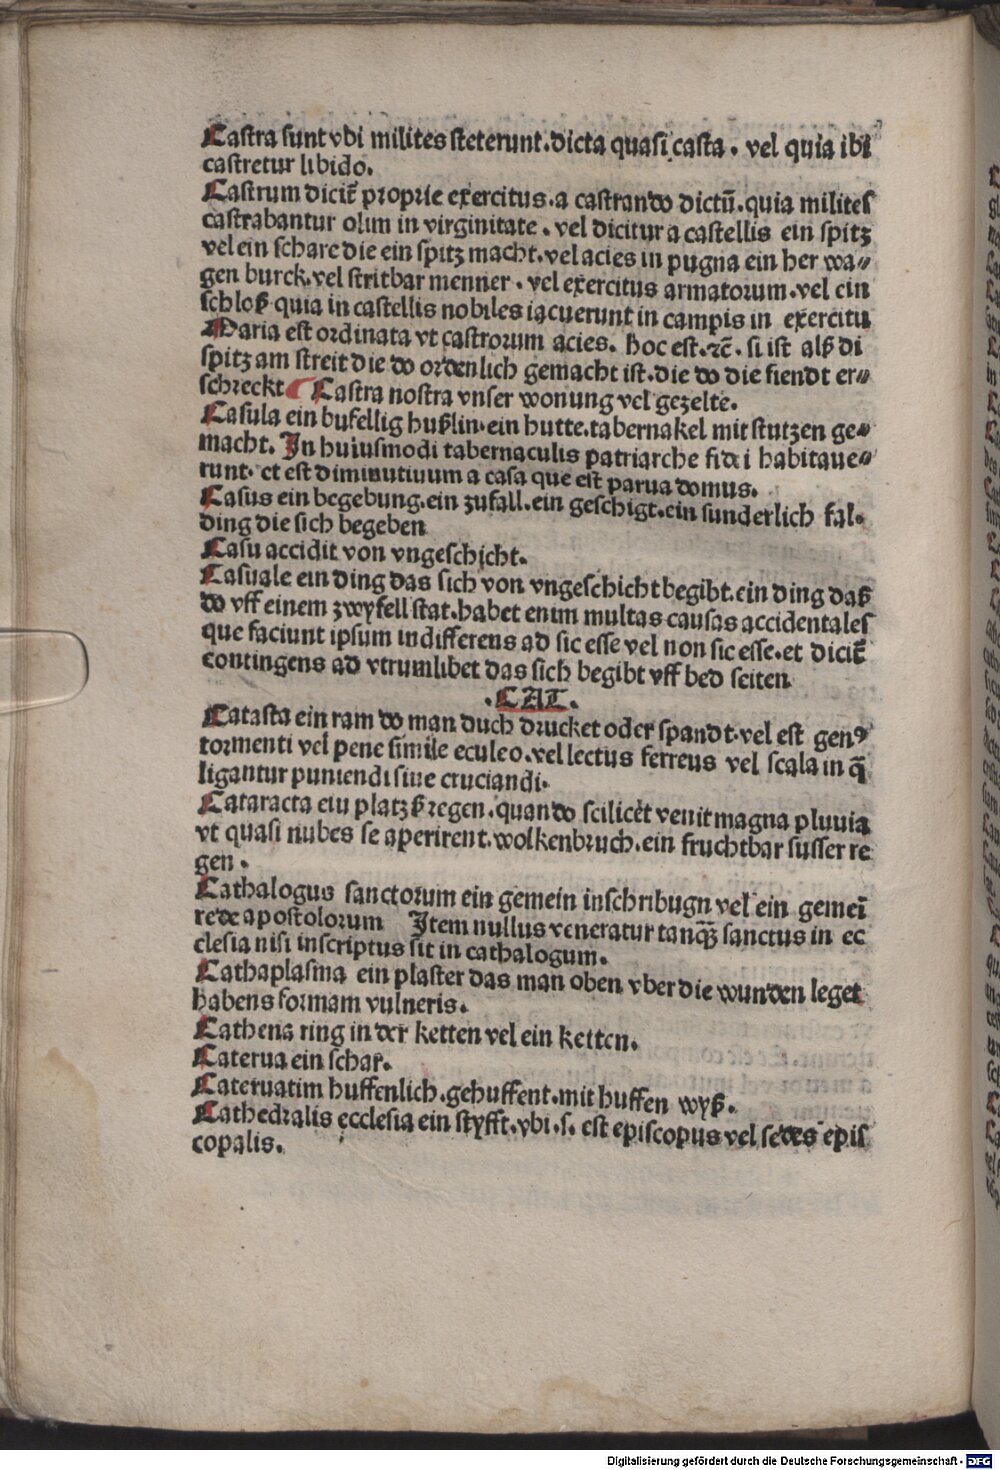 Castra sunt vbi milites steterunt. dicta quasi casta. vel quia ibi
castretur libido.
Castrum dicit̄ proprie exercitus. a castrando dictū. quia milites
castrabantur olim in virginitate. vel dicitur a castellis ein spitz
vel ein schare die ein spitz macht. vel acies in pugna ein her wa⸗
gen burck. vel stritbar menner. vel exercitus armatorum. vel ein
schloß quia in castellis nobiles iacuerunt in campis in exercitu
Maria est ordinata vt castrorum acies. hoc est. ⁊c̄. si ist alß di
spitz am streit die do ordenlich gemacht ist. die do die fiendt er⸗
schreckt Castra nostra vnser wonung vel gezelte.
Casula ein bufellig hußlin. ein hutte. tabernakel mit stutzen ge⸗
macht. In huiusmodi tabernaculis patriarche fidei habitaue⸗
runt. et est diminutiuum a casa que est parua domus.
Casus ein begebung. ein zufall. ein geschigt. ein sunderlich fal.
ding die sich begeben
Casu accidit von vngeschicht.
Casuale ein ding das sich von vngeschicht begibt. ein ding daß
do vff einem zwyfell stat. habet enim multas causas accidentales
que faciunt ipsum indifferens ad sic esse vel non sic esse. et dicit̄
contingens ad vtrumlibet das sich begibt vff bed seiten
.CAT.
Catasta ein ram do man duch drucket oder spandt. vel est genꝰ
tormenti vel pene simile eculeo. vel lectus ferreus vel scala in q̄
ligantur puniendi siue cruciandi.
Cataracta eiu platzßregen. quando scilicet venit magna pluuia
vt quasi nubes se aperirent. wolkenbruch. ein fruchtbar susser re
gen.
Cathalogus sanctorum ein gemein inschribugn vel ein gemeī
rede apostolorum Item nullus veneratur tanqꝫ sanctus in ec
clesia nisi inscriptus sit in cathalogum.
Cathaplasma ein plaster das man oben vber die wunden leget
habens formam vulneris.
Cathena ring in der ketten vel ein ketten.
Caterua ein schar.
Cateruatim huffenlich. gehuffent. mit huffen wyß.
Cathedralis ecclesia ein styfft. vbi. s. est episcopus vel sedes epis
copalis.
Digitalisierung gefördert durch die Deutsche Forschungsgemeinschaft - DFG